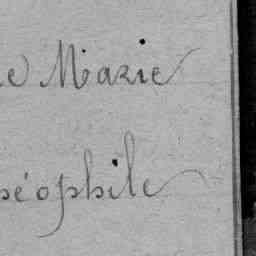 e Marie
héophile